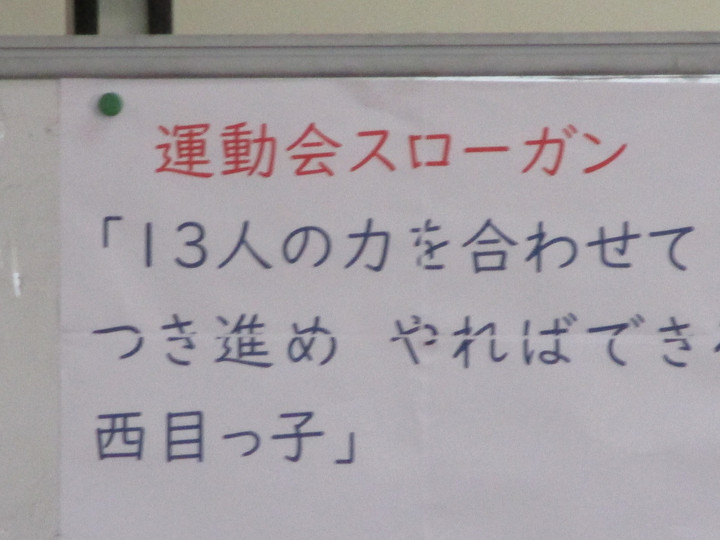 運動会スローガン
「13人の力を合わせて
つき進め やればでき
西目っ子」